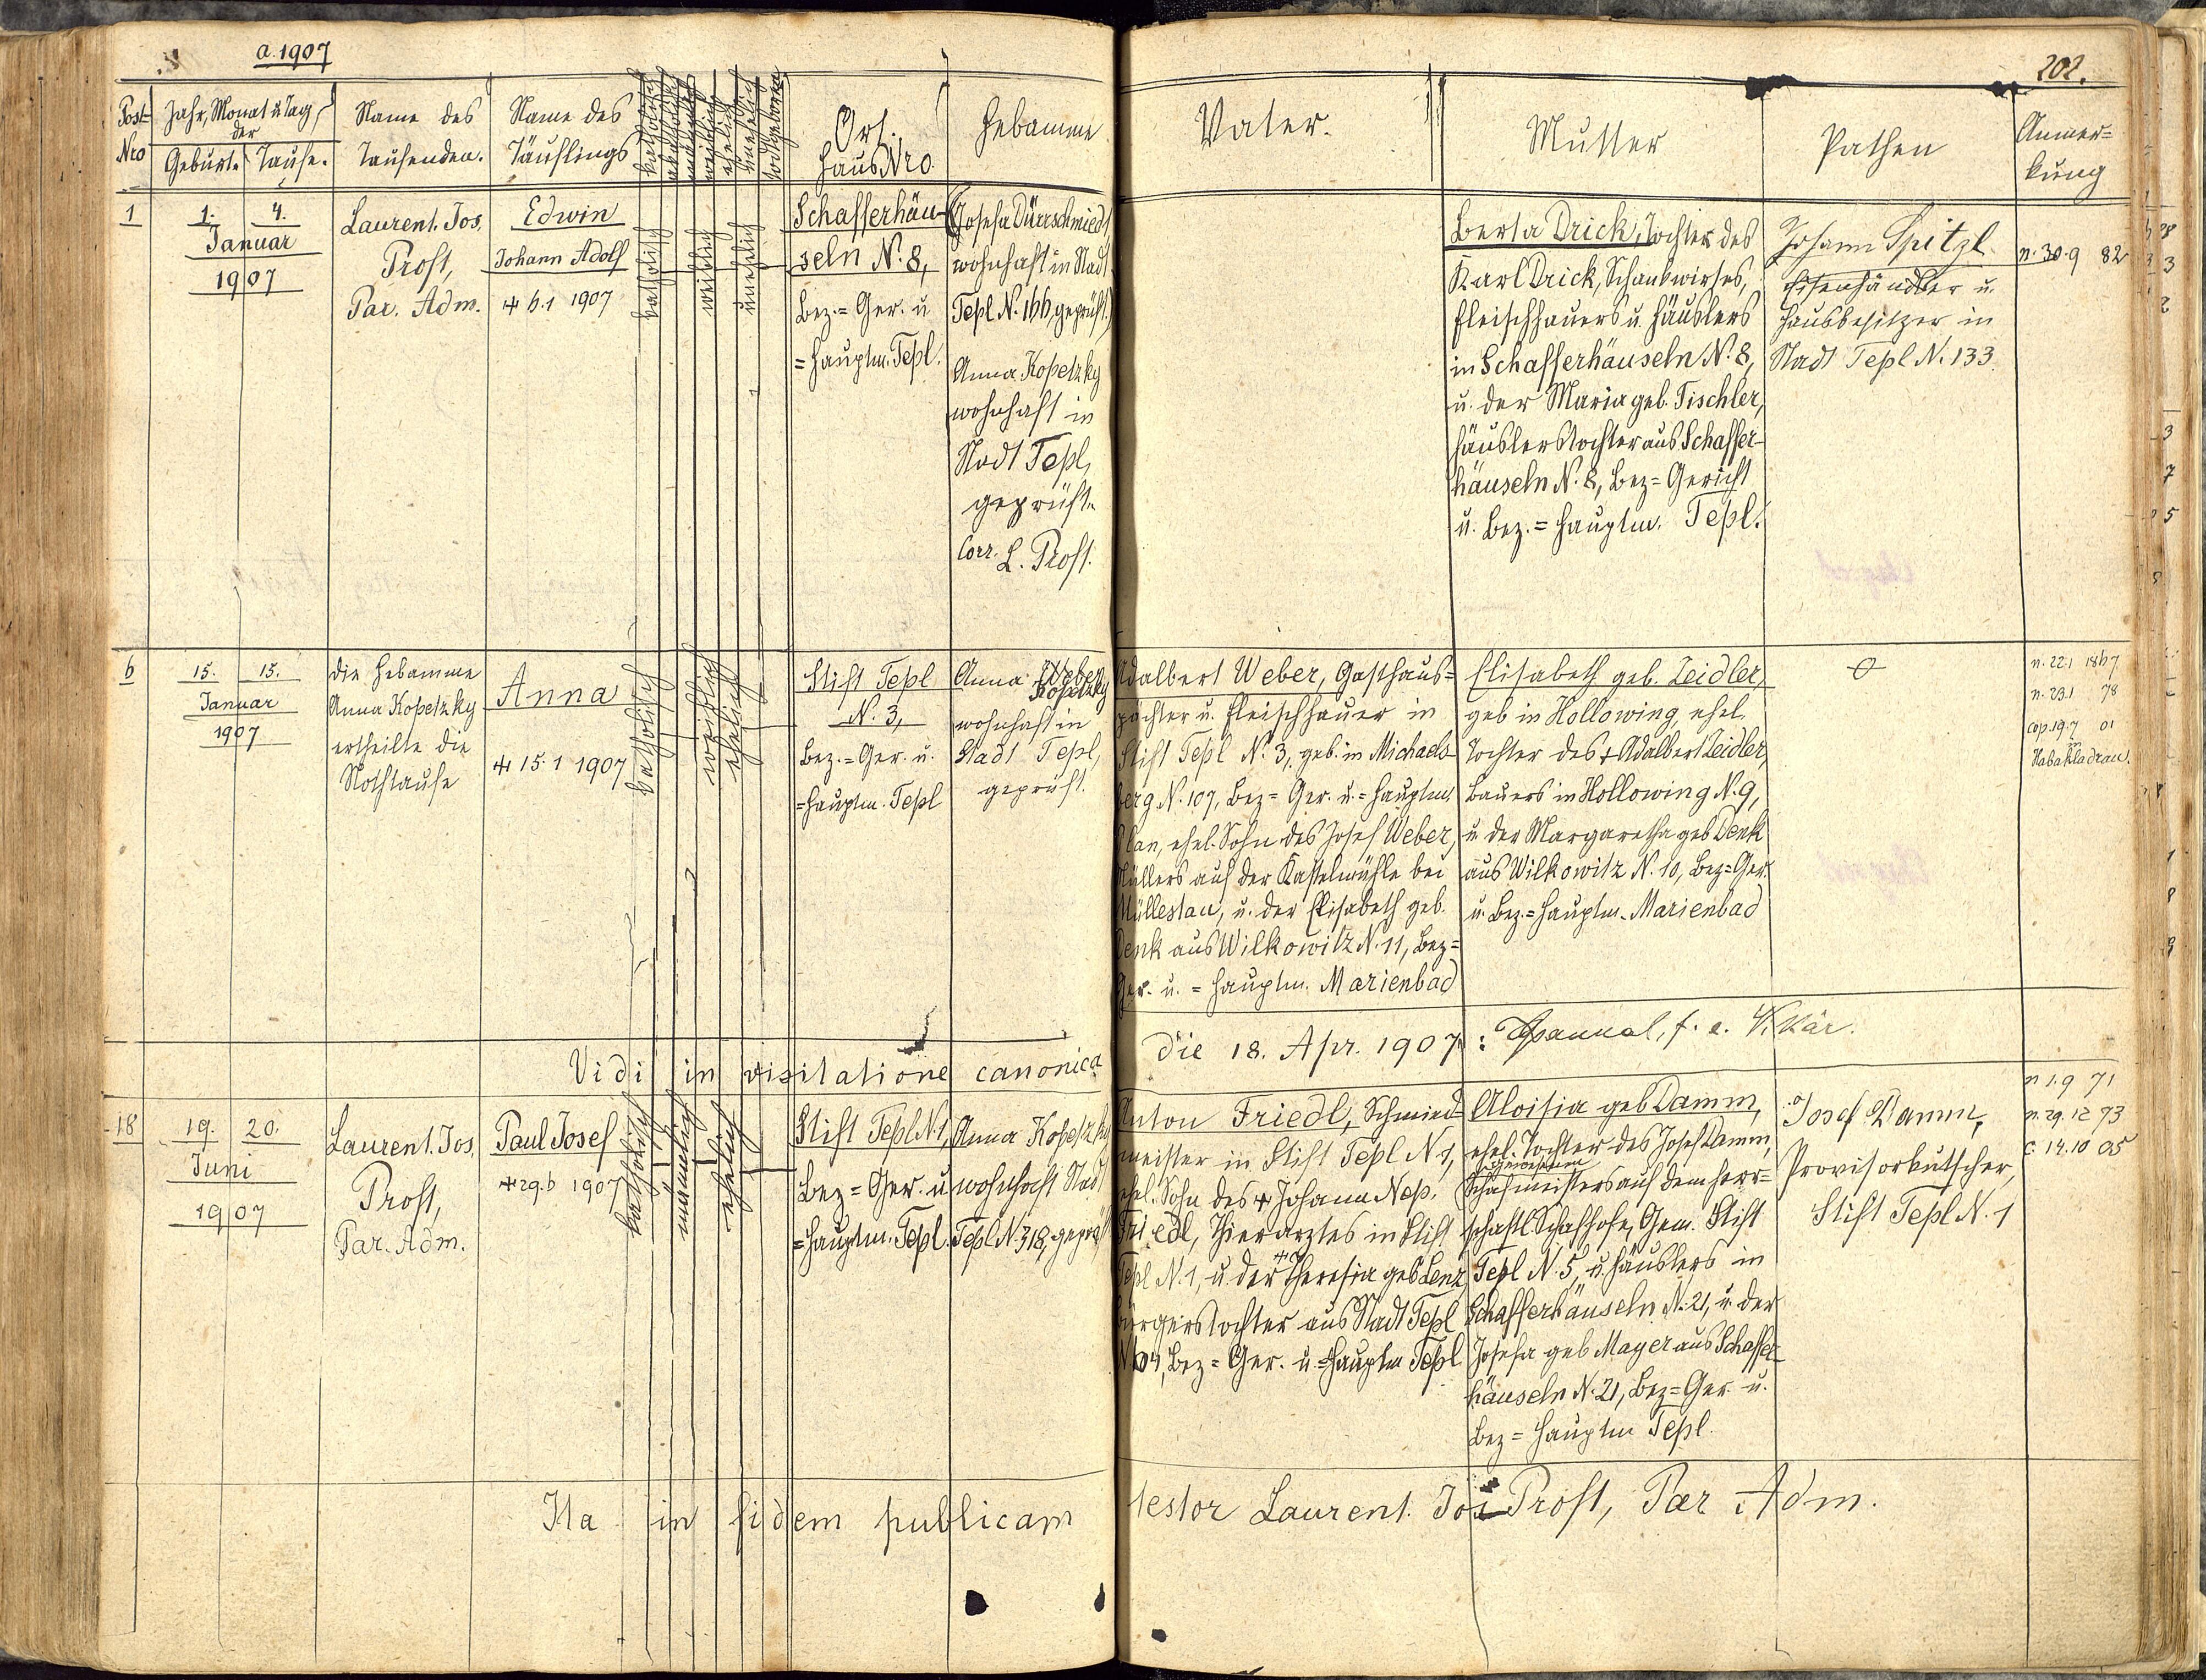 a. 1907
202.
Post= Nro
Jahr, Monat u. Tag der
Geburt. Taufe.
Name des Taufenden.
Name des Täuflings
katholisch
akatholisch
männlich
weiblich
ehelich
unehelich
todtgeboren
Ort.
Haus Nro
Hebamme
Vater.
Mutter
Pathen
Anmer=
kung
1
1. 4.
Januar
1907
Laurent. Jos.
Proft,
Par. Adm.
Edwin
Johann Adolf
+ 6.1 1907
katholisch
weiblich
unehelich
Schafferhäu-
seln N. 8,
Bez.= Ger. u
=Hauptm. Tepl.
(Josefa Dürrschmiedt,
wohnhaft in Stadt
Tepl N. 166, geprüft.)
Anna Kopetzky
wohnhaft in
Stadt Tepl,
geprüft.
Corr. L. Proft.
Berta Drick, Tochter des
Karl Drick, Schankwirtes,
Fleischhauers u. Häuslers
in Schafferhäuseln N. 8,
u. der Maria geb. Tischler,
Häuslerstochter aus Schaffer-
häuseln N. 8, Bez= Gericht
u. Bez.= Hauptm. Tepl.
Johann Spitzl
Eisenhändler u.
Hausbesitzer in
Stadt Tepl N. 133.
n. 30.9 82
6
15. 15.
Januar
1907
Die Hebamme
Anna Kopetzky
ertheilte die
Nothtaufe
Anna
+ 15.1 1907
katholisch
weiblich
ehelich
Stift Tepl
N. 3,
Bez.= Ger. u.
=Hauptm. Tepl
Anna Weber
Kopetzky
wohnhaft in
Stadt Tepl,
geprüft.
Adalbert Weber, Gasthaus=
pächter u. Fleischhauer in
Stift Tepl N. 3, geb. in Michaels-
berg N. 107, Bez= Ger. u.= Hauptm.
Plan, ehel. Sohn des Josef Weber,
Müllers auf der Kastelmühle bei
Müllestau, u. der Elisabeth geb.
Denk aus Wilkowitz N. 11, Bez=
Ger. u. = Hauptm. Marienbad
Elisabeth geb. Zeidler,
geb in Hollowing, ehel.
Tochter des + Adalbert Zeidler,
Bauers in Hollowing N. 9,
u. der Margaretha geb Denk
aus Wilkowitz N. 10, Bez= Ger.
u. Bez.= Hauptm. Marienbad
n. 22.1 1867
n. 23.1 78
cop. 19.7 01
in
Habakladrau.
Vidi in visitatione canonica
die 18. Apr. 1907:
18
19. 20.
Juni
1907
Laurent. Jos.
Proft,
Par. Adm.
Paul Josef
+ 29.6 1907
katholisch
männlich
ehelich
Stift Tepl N. 1,
Bez= Ger. u
=Hauptm. Tepl.
Anna Kopetzky
wohnhaft Stadt
Tepl N. 318, geprüft
Anton Friedl, Schmied-
meister in Stift Tepl N. 1,
ehel. Sohn des + Johann Nep.
Friedl, Thierarztes in Stift
Tepl N. 1, u. der + Theresia geb Lenz
Bürgerstochter aus Stadt Tepl
N. 64, Bez= Ger. u. =Hauptm Tepl
Aloisia geb Damm,
ehel. Tochter des Josef Damm,
gewesenen
Schafmeisters auf dem herr=
schaftl Schafhofe, Gem. Stift
Tepl N. 5, u. Häuslers in
Schafferhäuseln N. 21, u. der
Josefa geb Mayer aus Schaffer-
häuseln N. 21, Bez= Ger. u.
Bez= Hauptm Tepl.
Josef Damm,
Provisorkutscher,
Stift Tepl N. 1
n 1.9 71
n. 29.12 73
c. 14.10 05
Ita in fidem publicam testor Laurent. Jos Proft, Par Adm.